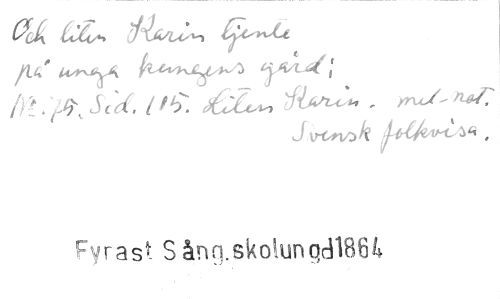 Och liten Karin tjente
på unga kungens gård;
No: 75. Sid. 115. Liten Karin. mel-not.
Svensk folkvisa.
Fyrast Sång.skolungd1864